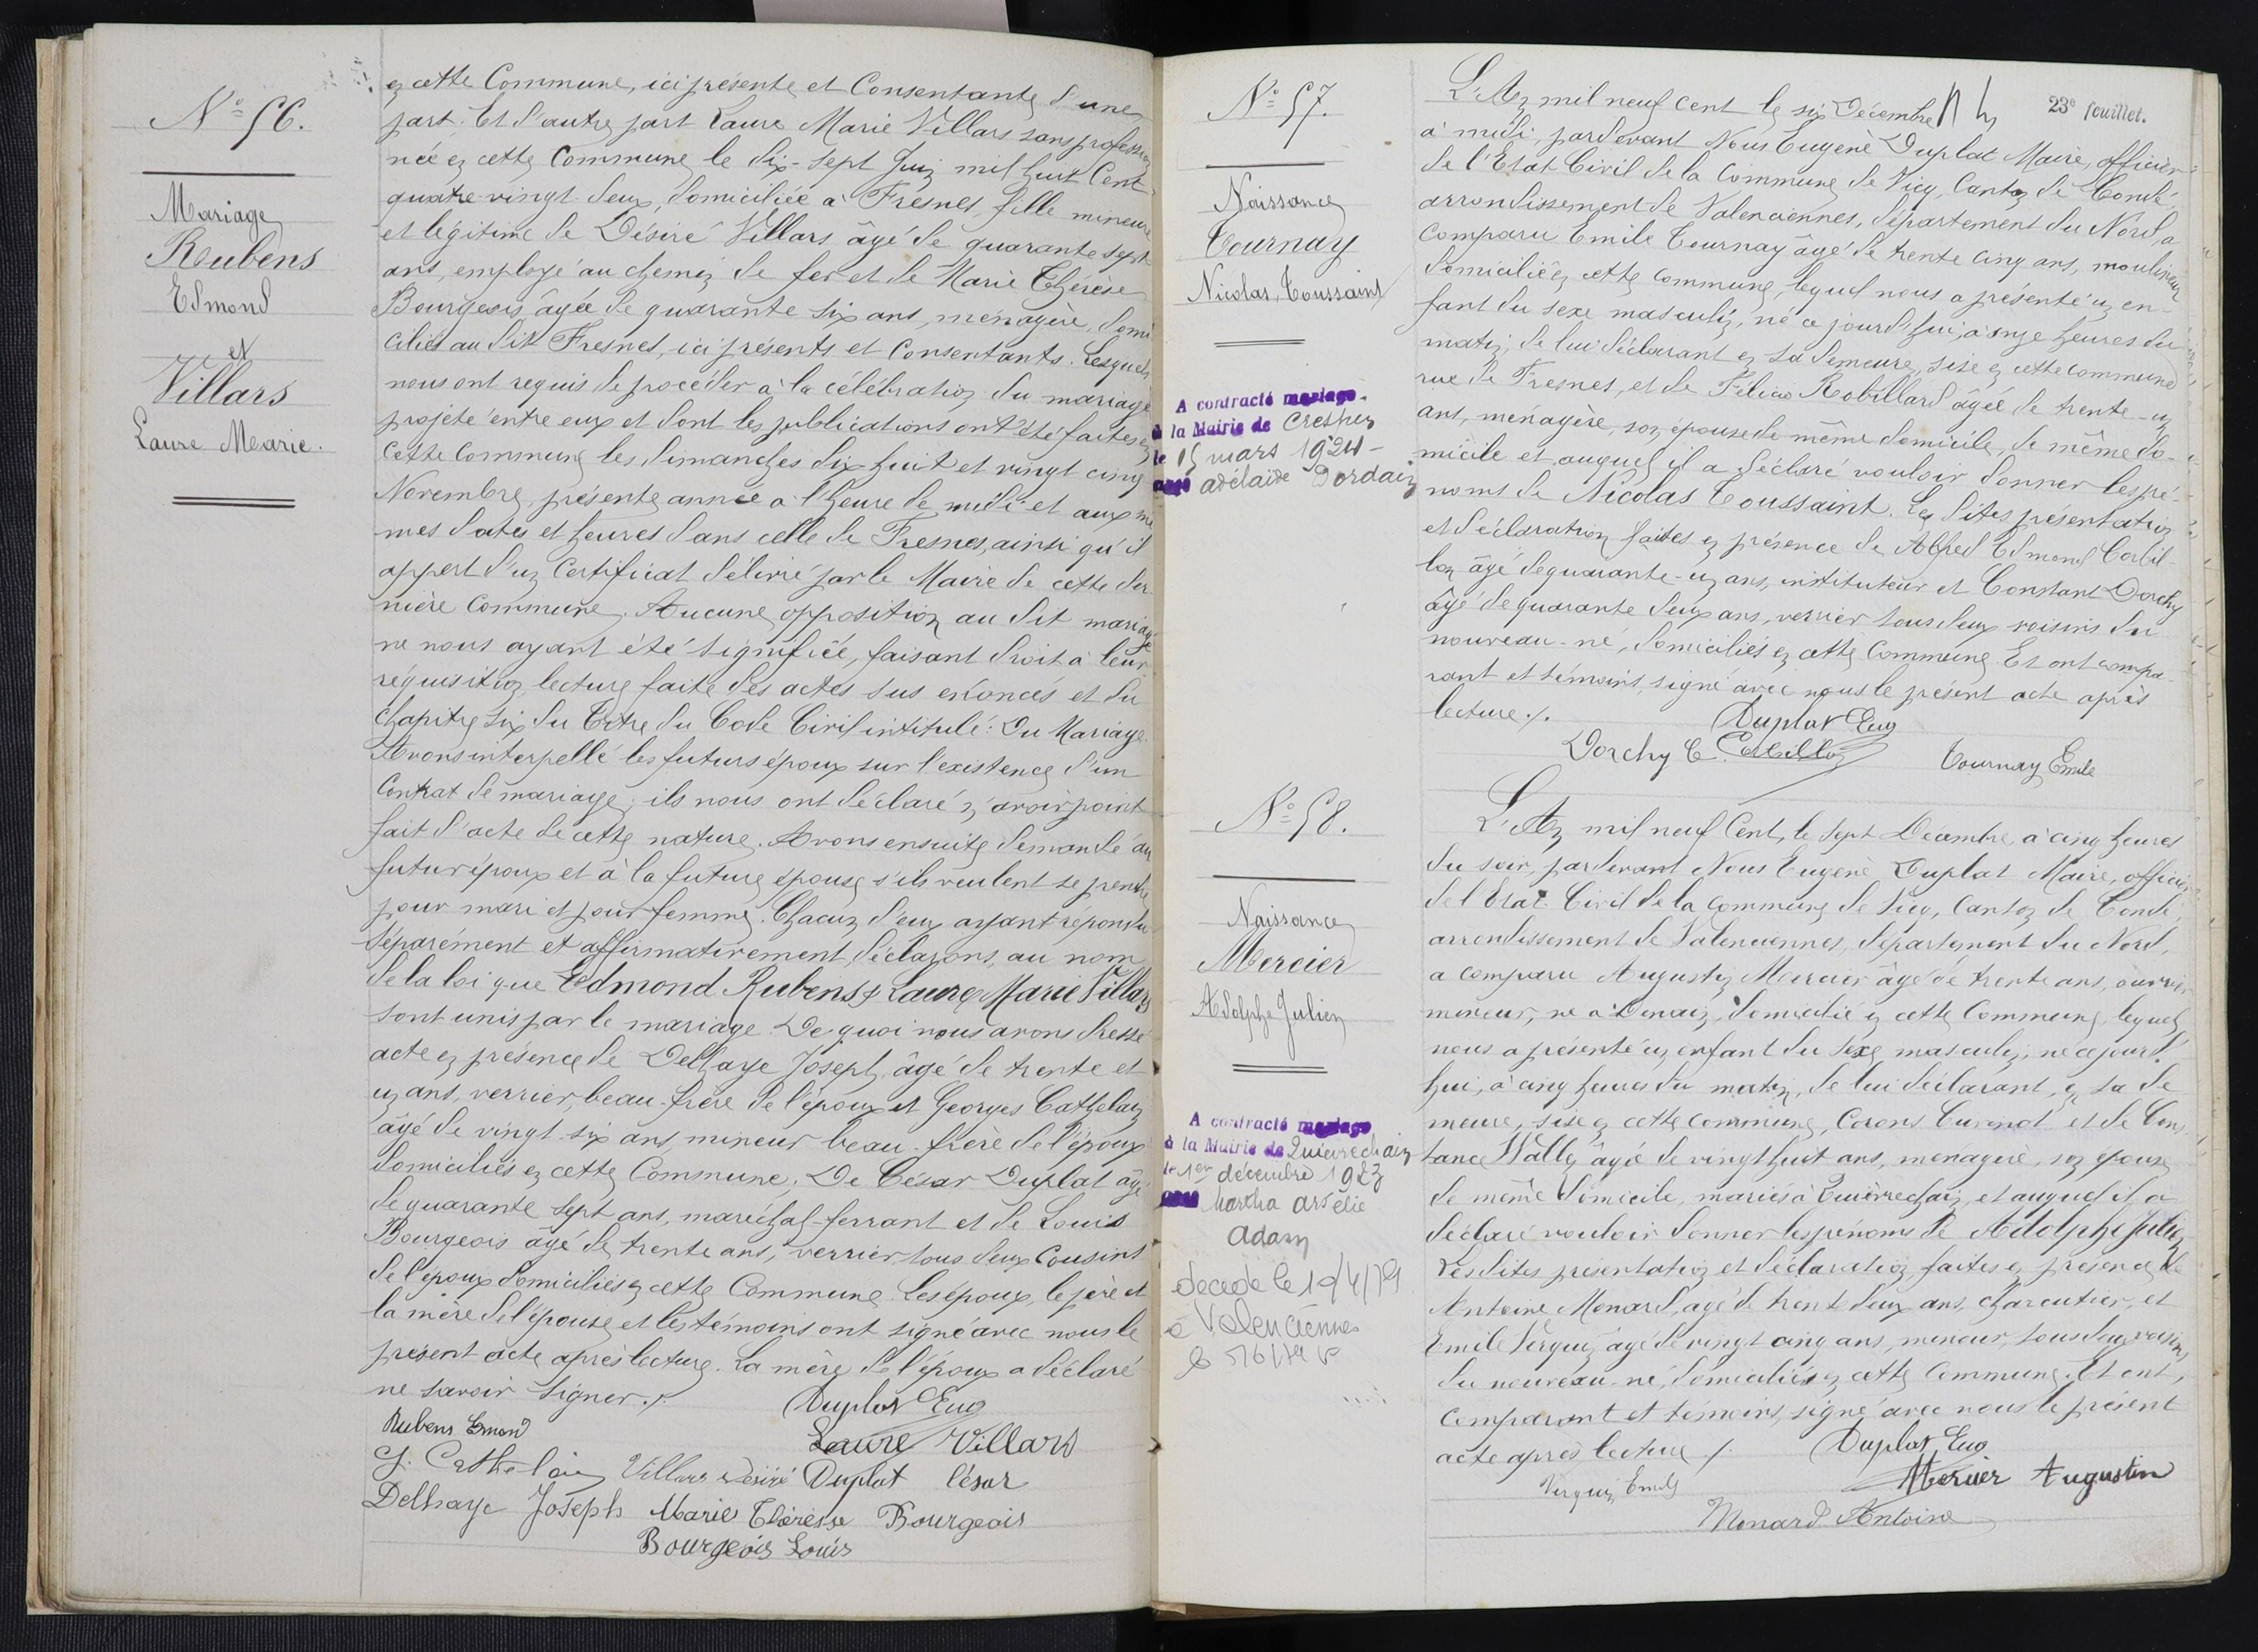 N° 56.
Mariage
Rubens
Edmond
et
Villars
Laure Marie.
en cette Commune, ici présente et Consentante d'une
part. Et d'autre part Laure Marie Villars sans profession
née en cette Commune le dix-sept Juin mil huit Cent
quatre-vingt-deux, domiciliée à Fresnes, fille mineure
et légitime de Désiré Villars âgé de quarante sept
ans, employé au chemin de fer et de Marie Thérèse
Bourgeois âgée de quarante six ans, ménagère, domi
ciliés au dit Fresnes, ici présents et Consentants. Lesquels
nous ont requis de procéder à la célébration du mariage
projeté entre eux et dont les publications ont été faites en
cette Commune les dimanches dix huit et vingt cinq
Novembre, présente année à l'heure de midi et aux mê
mes dates et heures dans celle de Fresnes, ainsi qu'il
appert d'un Certificat délivré par le Maire de cette der
nière Commune. Aucune opposition au dit mariage
ne nous ayant été signifiée, faisant droit à leur
réquisition, lecture faite des actes sus énoncés et du
Chapitre six du Titre du Code Civil intitulé: Du Mariage.
Avons interpellé les futurs époux sur l'existence d'un
Contrat de mariage; ils nous ont déclaré n'avoir point
fait d'acte de cette nature. Avons ensuite demandé au
futur époux et à la future épouse s'ils veulent se prendre
pour mari et pour femme. Chacun d'eux ayant répondu
séparément et affirmativement, déclarons, au nom
de la loi que Edmond Rubens & Laure Marie Villars
sont unis par le mariage. De quoi nous avons dressé
acte en présence de Delhaye Joseph, âgé de trente et
un ans, verrier, beau-frère de l'époux et Georges Cathelain
âgé de vingt-six ans mineur beau-frère de l'époux
domiciliés en cette Commune; De César Duplat âgé
de quarante sept ans, maréchal-ferrant et de Louis
Bourgeois âgé de trente ans, verrier, tous deux Cousins
de l'époux domiciliés en cette Commune. Les époux, le père et
la mère de l'épouse et les témoins ont signé avec nous le
présent acte après lecture. La mère de l'époux a déclaré
ne savoir signer./.
Duplat Eug
Rubens Emond
Laure Villars
G. Cathelain Villars Désiré Duplat César
Delhaye Joseph Marie Thérèsse Bourgeois
Bourgeois Louis
23e feuillet.
N° 57.
Naissance
Tournay
Nicolas, Toussaint
A contracté mariage
à la Mairie de Crespin
le 15 mars 1924 -
avec adélaïde Dordain
L'An mil neuf cent le six Décembre
à midi, pardevant Nous Eugène Duplat Maire, officier
de l'Etat Civil de la Commune de Vicq, Canton de Condé,
arrondissement de Valenciennes, département du Nord, a
comparu Emile Tournay âgé de trente cinq ans, moulineur
domicilié en cette commune, lequel nous a présenté un en-
fant du sexe masculin, né ce jourd'hui, à onze heures du
matin, de lui déclarant en sa demeure, sise en cette commune
rue de Fresnes, et de Félicie Robillard âgée de trente-un
ans, ménagère, son épouse de même domicile, de même do-
micile et auquel il a déclaré vouloir donner les pré-
noms de Nicolas Toussaint. Les dites présentation
et déclaration faites en présence de Alfred Edmond Corbil-
lon âgé de quarante-un ans, instituteur et Constant Dorchy
âgé de quarante deux ans, verrier tous deux voisins du
nouveau-né, domiciliés en cette Commune. Et ont compa-
rant et témoins, signé avec nous le présent acte après
lecture./.
Duplat Eug
Dorchy C. Corbillon Tournay Emile
N° 58.
Naissance
Mercier
Adolphe Julien
A contracté mariage
à la Mairie de Quiévrechain
le 1er décembre 1923
avec Martha Arsélie
Adam
décédé le 19/4/79
à Valenciennes
L'An mil neuf Cent, le sept Décembre à cinq heures
du soir, pardevant Nous Eugène Duplat Maire, officier
de l'Etat Civil de la Commune de Vicq, Canton de Condé,
arrondissement de Valenciennes, département du Nord,
a comparu Augustin Mercier âgé de trente ans, ouvrier
mineur, né à Denain, domicilié en cette Commune, lequel
nous a présenté un enfant du sexe masculin, né ce jourd'
hui, à cinq heures du matin, de lui déclarant, en sa de
meure, sise en cette commune, Corons Cuvinot et de Cons
tance Wallez âgée de vingt huit ans, ménagère, son épouse
de même domicile, mariés à Quiévrechain, et auquel il a
déclaré vouloir donner les prénoms de Adolphe Julien
Les dites présentation et déclaration faites en présence de
Antoine Monard, âgé de trente deux ans, charcutier, et
Emile Verquin âgé de vingt cinq ans, mineur, tous deux voisins
du nouveau-né, domiciliés en cette Commune. Et ont,
comparant et témoins, signé avec nous le présent
acte après lecture./.
Duplat Eug
Verquin Emile Mercier Augustin
Monard Antoine